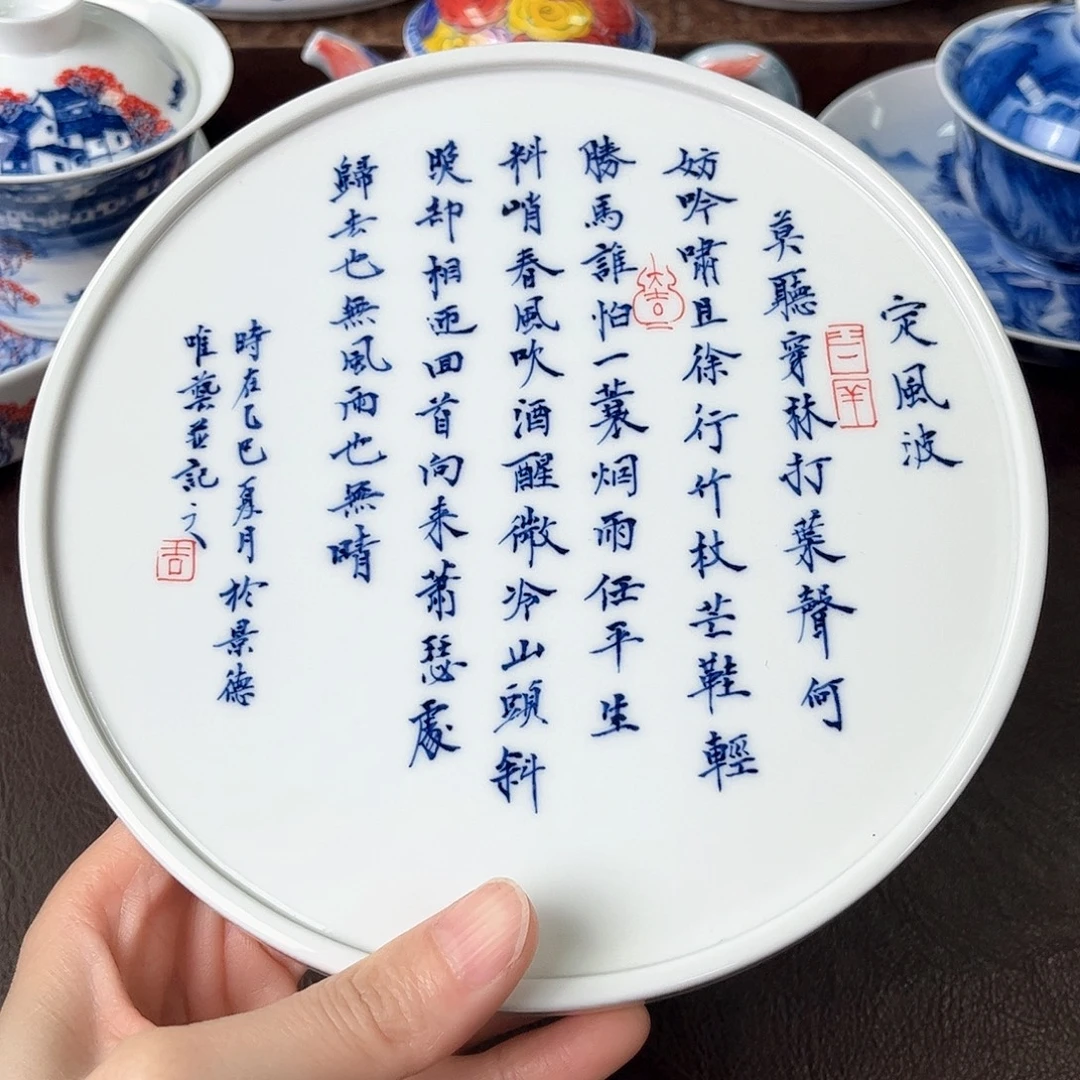 定風波
莫聽穿林打葉聲何
妨吟嘯且徐行竹杖芒鞋輕
勝馬誰怕一蓑烟雨任平生
料峭春風吹酒醒微冷山頭斜
照却相迎回首向来蕭瑟處
歸去也無風雨也無晴
時在乙巳夏月於景德
唯藝並記之
吉